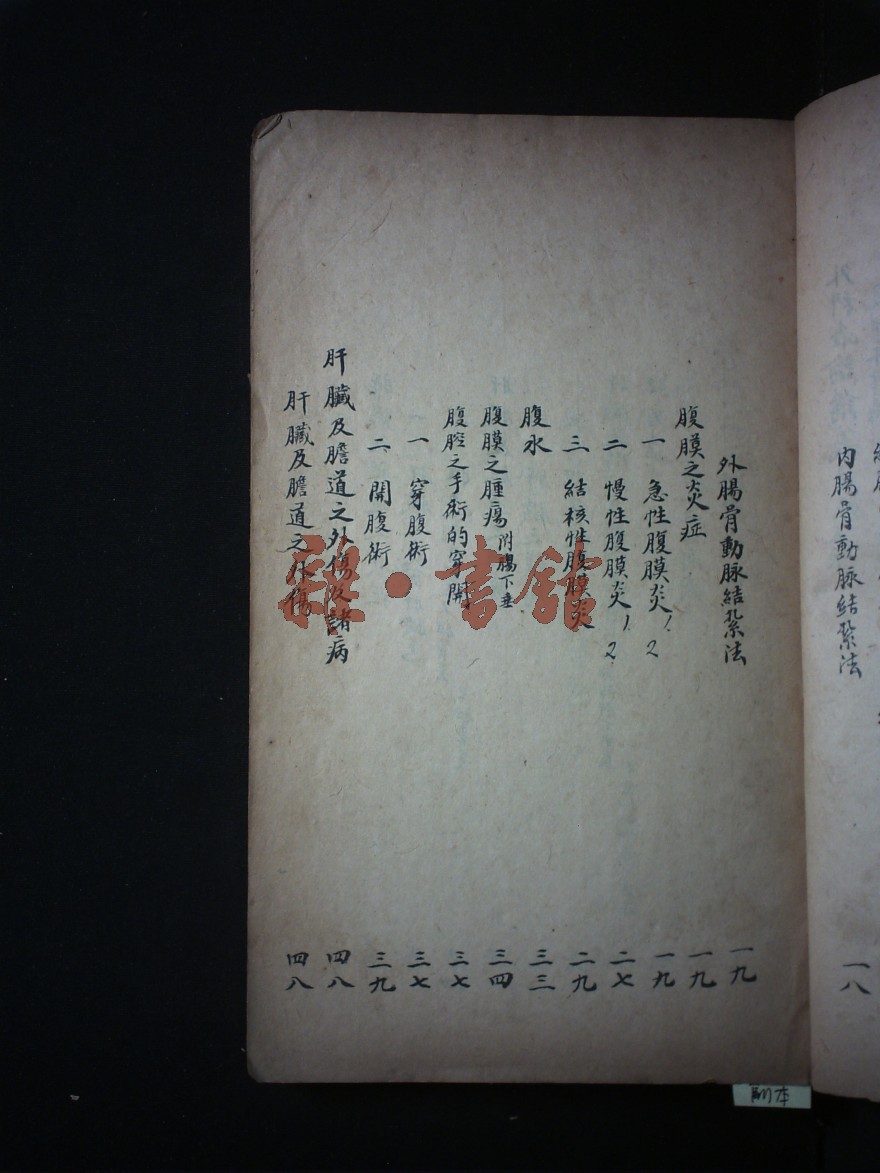 内腸骨動脈結紮法 一八
外腸骨動脈結紮法 一九
腹膜之炎症 一九
一 急性腹膜炎 1. 2 一九
二 慢性腹膜炎 1. 2 二七
三 結核性腹膜炎 二九
腹水 三三
腹膜之腫瘍 附腸下垂 三四
腹腔之手術的穿開 三七
一 穿腹術 三七
二 開腹術 三九
肝臟及膽道之外傷及諸病 四八
肝臟及膽道之外傷 四八
雜·書館
副本